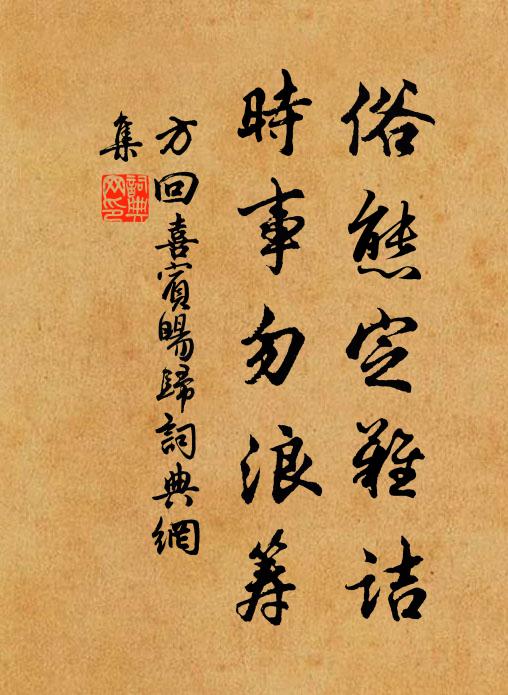 俗態定難詰
時事勿浪籌
方回喜賓暘歸詞典網
集
詞典
网印